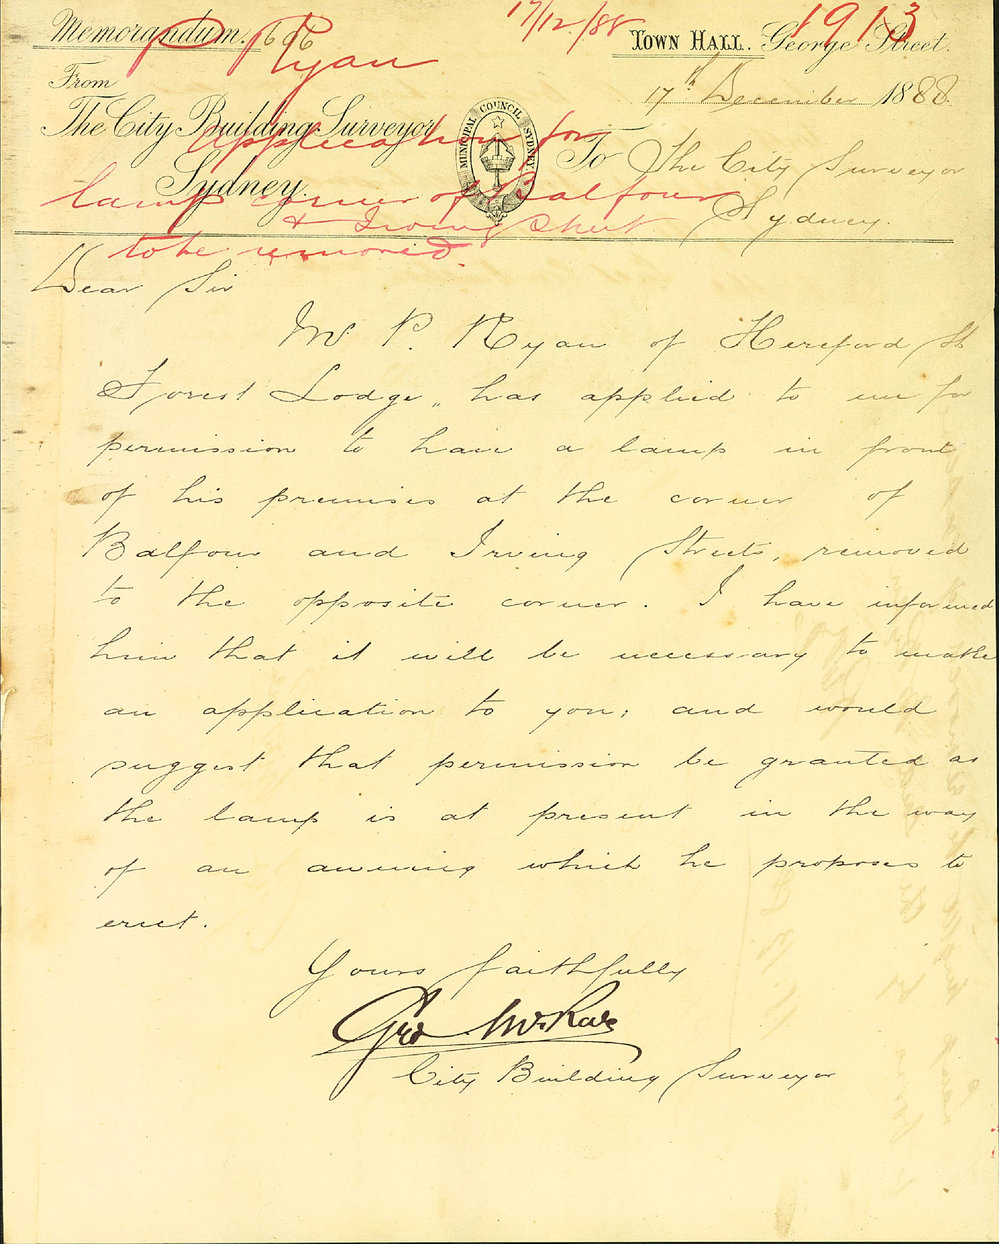 17/12/88
1913
P Ryan
application for
lamp corner of Balfour
& Irving Street
to be removed.
Memorandum. 1606
Town Hall. George Street.
From
17th December 1888.
The City Building Surveyor
Sydney.
MUNICIPAL COUNCIL SYDNEY
To The City Surveyor
Sydney.
Dear Sir
Mr P. Ryan of Hereford St
Forest Lodge, has applied to me for
permission to have a lamp in front
of his premises at the corner of
Balfour and Irving Streets, removed
to the opposite corner. I have informed
him that it will be necessary to make
an application to you; and would
suggest that permission be granted as
the lamp is at present in the way
of an awning which he proposes to
erect.
Yours faithfully
Geo McRae
City Building Surveyor